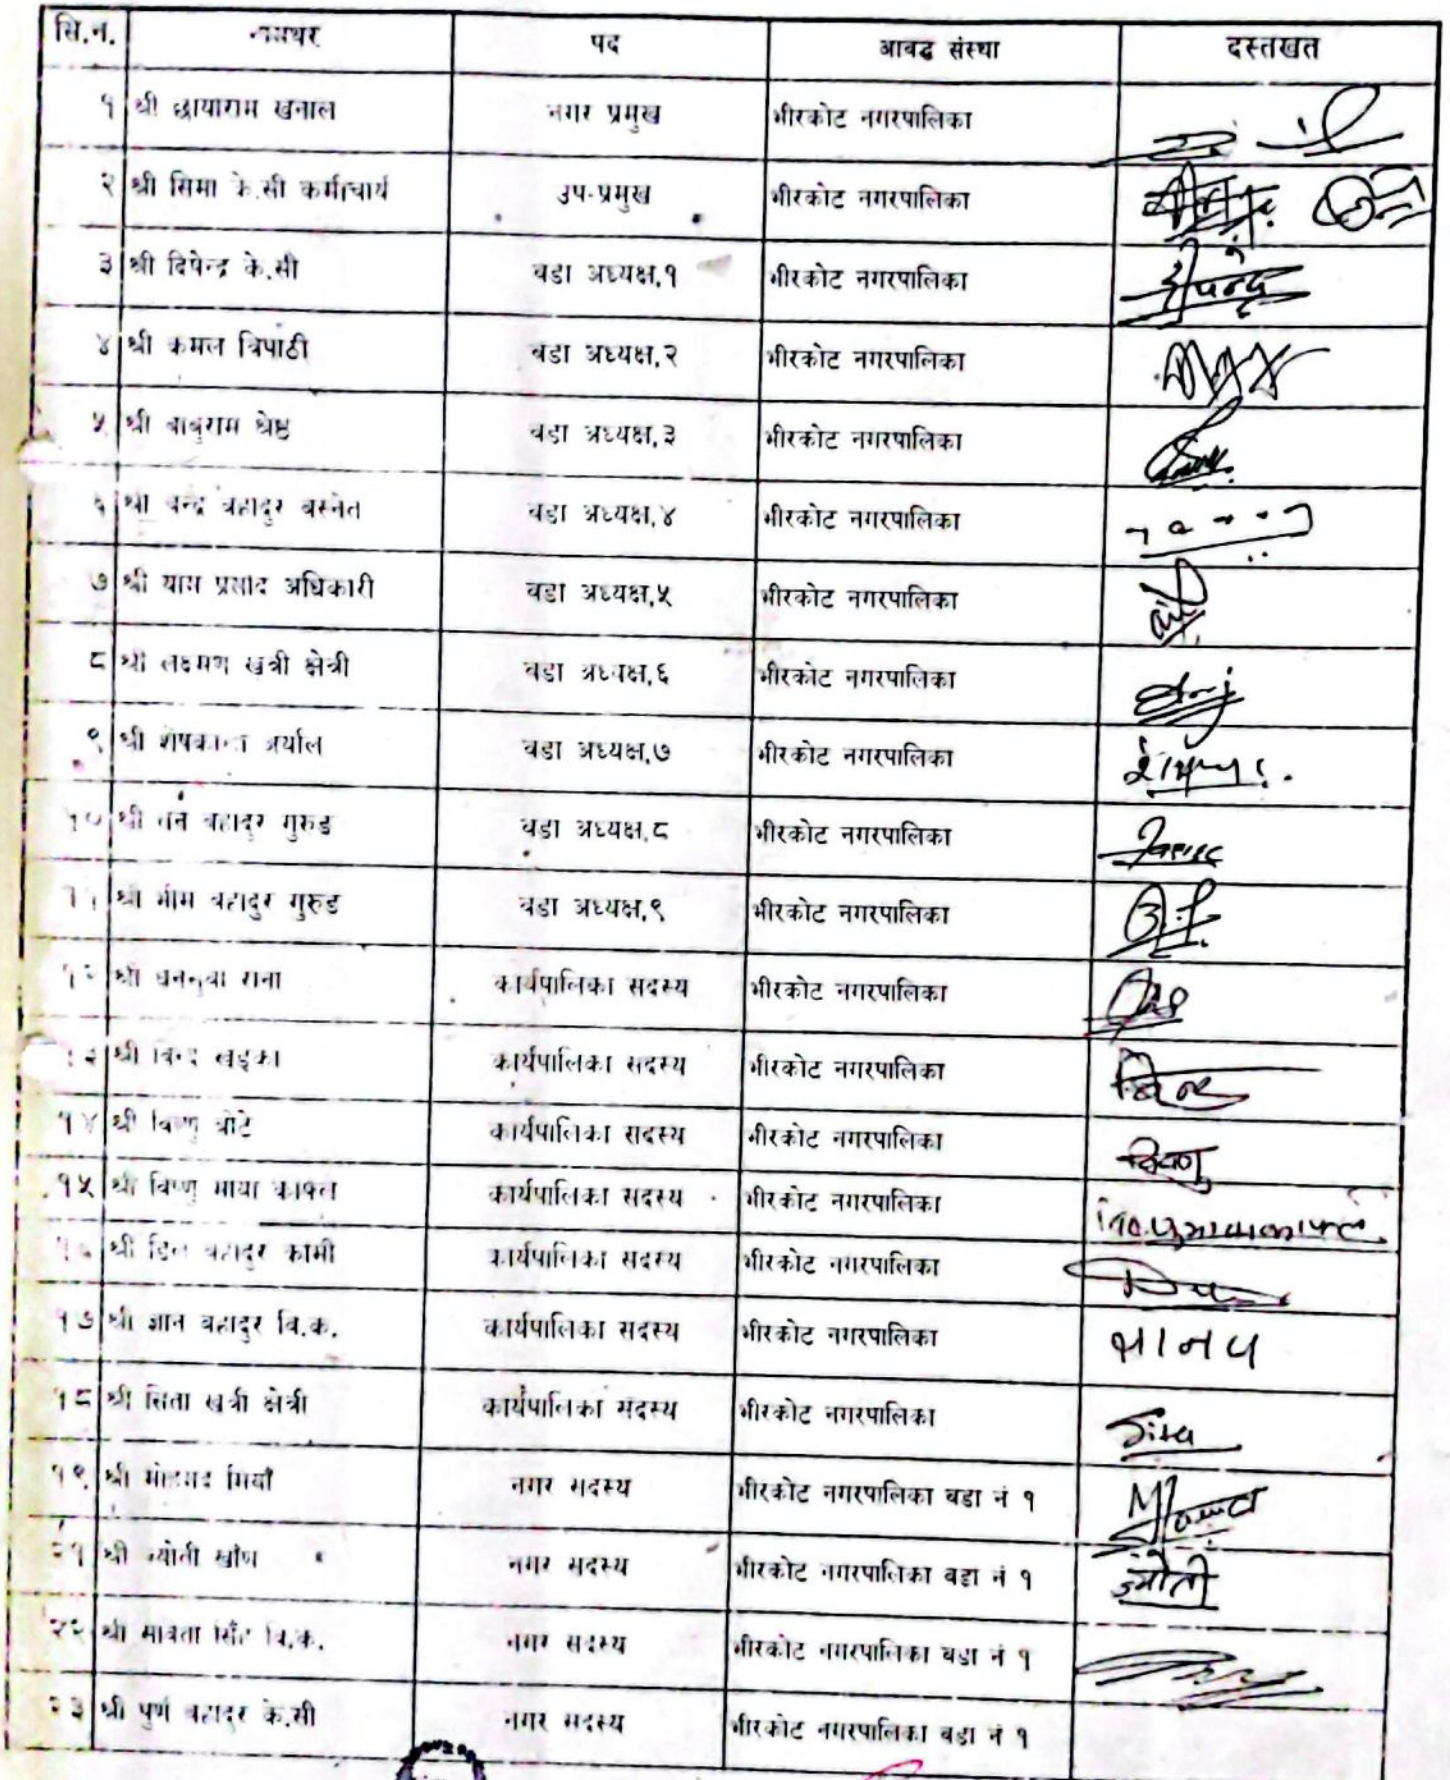 सि.न. नामथर पद आवद्ध संस्था दस्तखत
१ श्री छायाराम खनाल नगर प्रमुख भीरकोट नगरपालिका
२ श्री सिमा के.सी कर्माचार्य उप-प्रमुख भीरकोट नगरपालिका
३ श्री दिपेन्द्र के.सी वडा अध्यक्ष,१ भीरकोट नगरपालिका
४ श्री कमल त्रिपाठी वडा अध्यक्ष,२ भीरकोट नगरपालिका
५ श्री बाबुराम श्रेष्ठ वडा अध्यक्ष,३ भीरकोट नगरपालिका
६ श्री चन्द्र बहादुर बस्नेत वडा अध्यक्ष,४ भीरकोट नगरपालिका
७ श्री याम प्रसाद अधिकारी वडा अध्यक्ष,५ भीरकोट नगरपालिका
८ श्री लक्ष्मण खत्री क्षेत्री वडा अध्यक्ष,६ भीरकोट नगरपालिका
९ श्री शेषकान्त अर्याल वडा अध्यक्ष,७ भीरकोट नगरपालिका
१० श्री बहादुर गुरुङ वडा अध्यक्ष,८ भीरकोट नगरपालिका
११ श्री भीम बहादुर गुरुङ वडा अध्यक्ष,९ भीरकोट नगरपालिका
१२ श्री राना कार्यपालिका सदस्य भीरकोट नगरपालिका
१३ श्री खड्का कार्यपालिका सदस्य भीरकोट नगरपालिका
१४ श्री विष्णु बोटे कार्यपालिका सदस्य भीरकोट नगरपालिका विष्णु
१५ श्री विष्णु माया काफ्ले कार्यपालिका सदस्य भीरकोट नगरपालिका
१६ श्री डिल बहादुर कामी कार्यपालिका सदस्य भीरकोट नगरपालिका
१७ श्री ज्ञान बहादुर वि.क. कार्यपालिका सदस्य भीरकोट नगरपालिका
१८ श्री सिता खत्री क्षेत्री कार्यपालिका सदस्य भीरकोट नगरपालिका Sita
१९ श्री मोहमद मियाँ नगर सदस्य भीरकोट नगरपालिका वडा नं १
२१ श्री ज्योती खाँण नगर सदस्य भीरकोट नगरपालिका वडा नं १ ज्योती
२२ श्री वि.क. नगर सदस्य भीरकोट नगरपालिका वडा नं १
२३ श्री पुर्ण बहादुर के.सी नगर सदस्य भीरकोट नगरपालिका वडा नं १